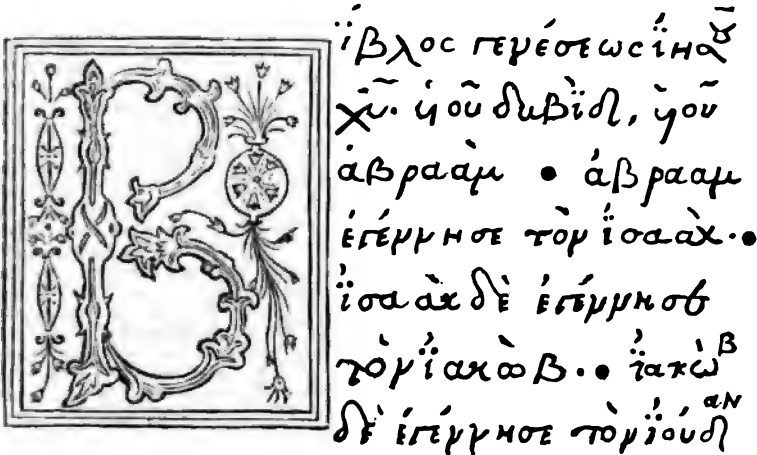 Βΐβλος γενέσεως ϊησȣ͂
χῡ· ὑοῦ δαβὶδ, ὑοῦ
ἀβραὰμ • ἀβρααμ
ἐγέννησε τὸν ἰσαὰκ·•
ἰσαὰκ δὲ ἐγέννησε
τὸν ἰακὼβ·• ἰακὼβ
δὲ ἐγέννησε τὸν ἰούδαν